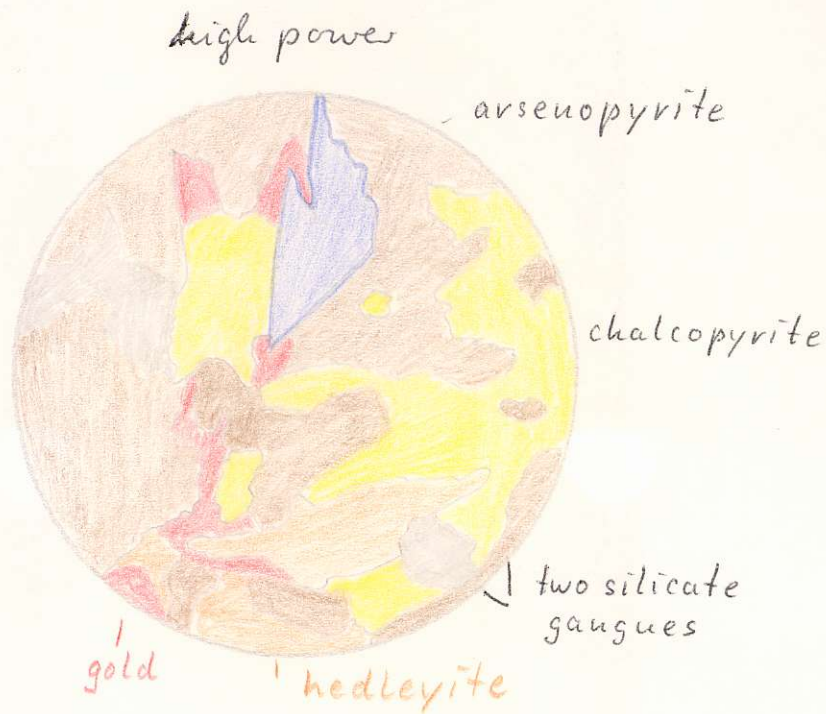 high power
arsenopyrite
chalcopyrite
two silicate
gangues
gold
hedleyite